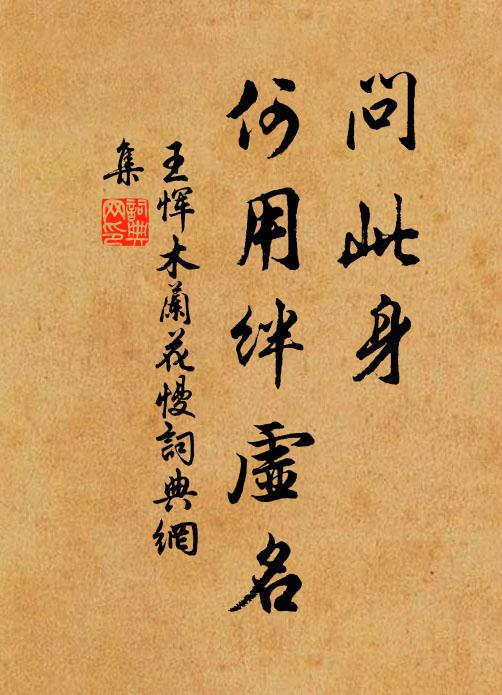 問此身
何用絆虛名
王惲木蘭花慢詞典網
集
詞典
网印